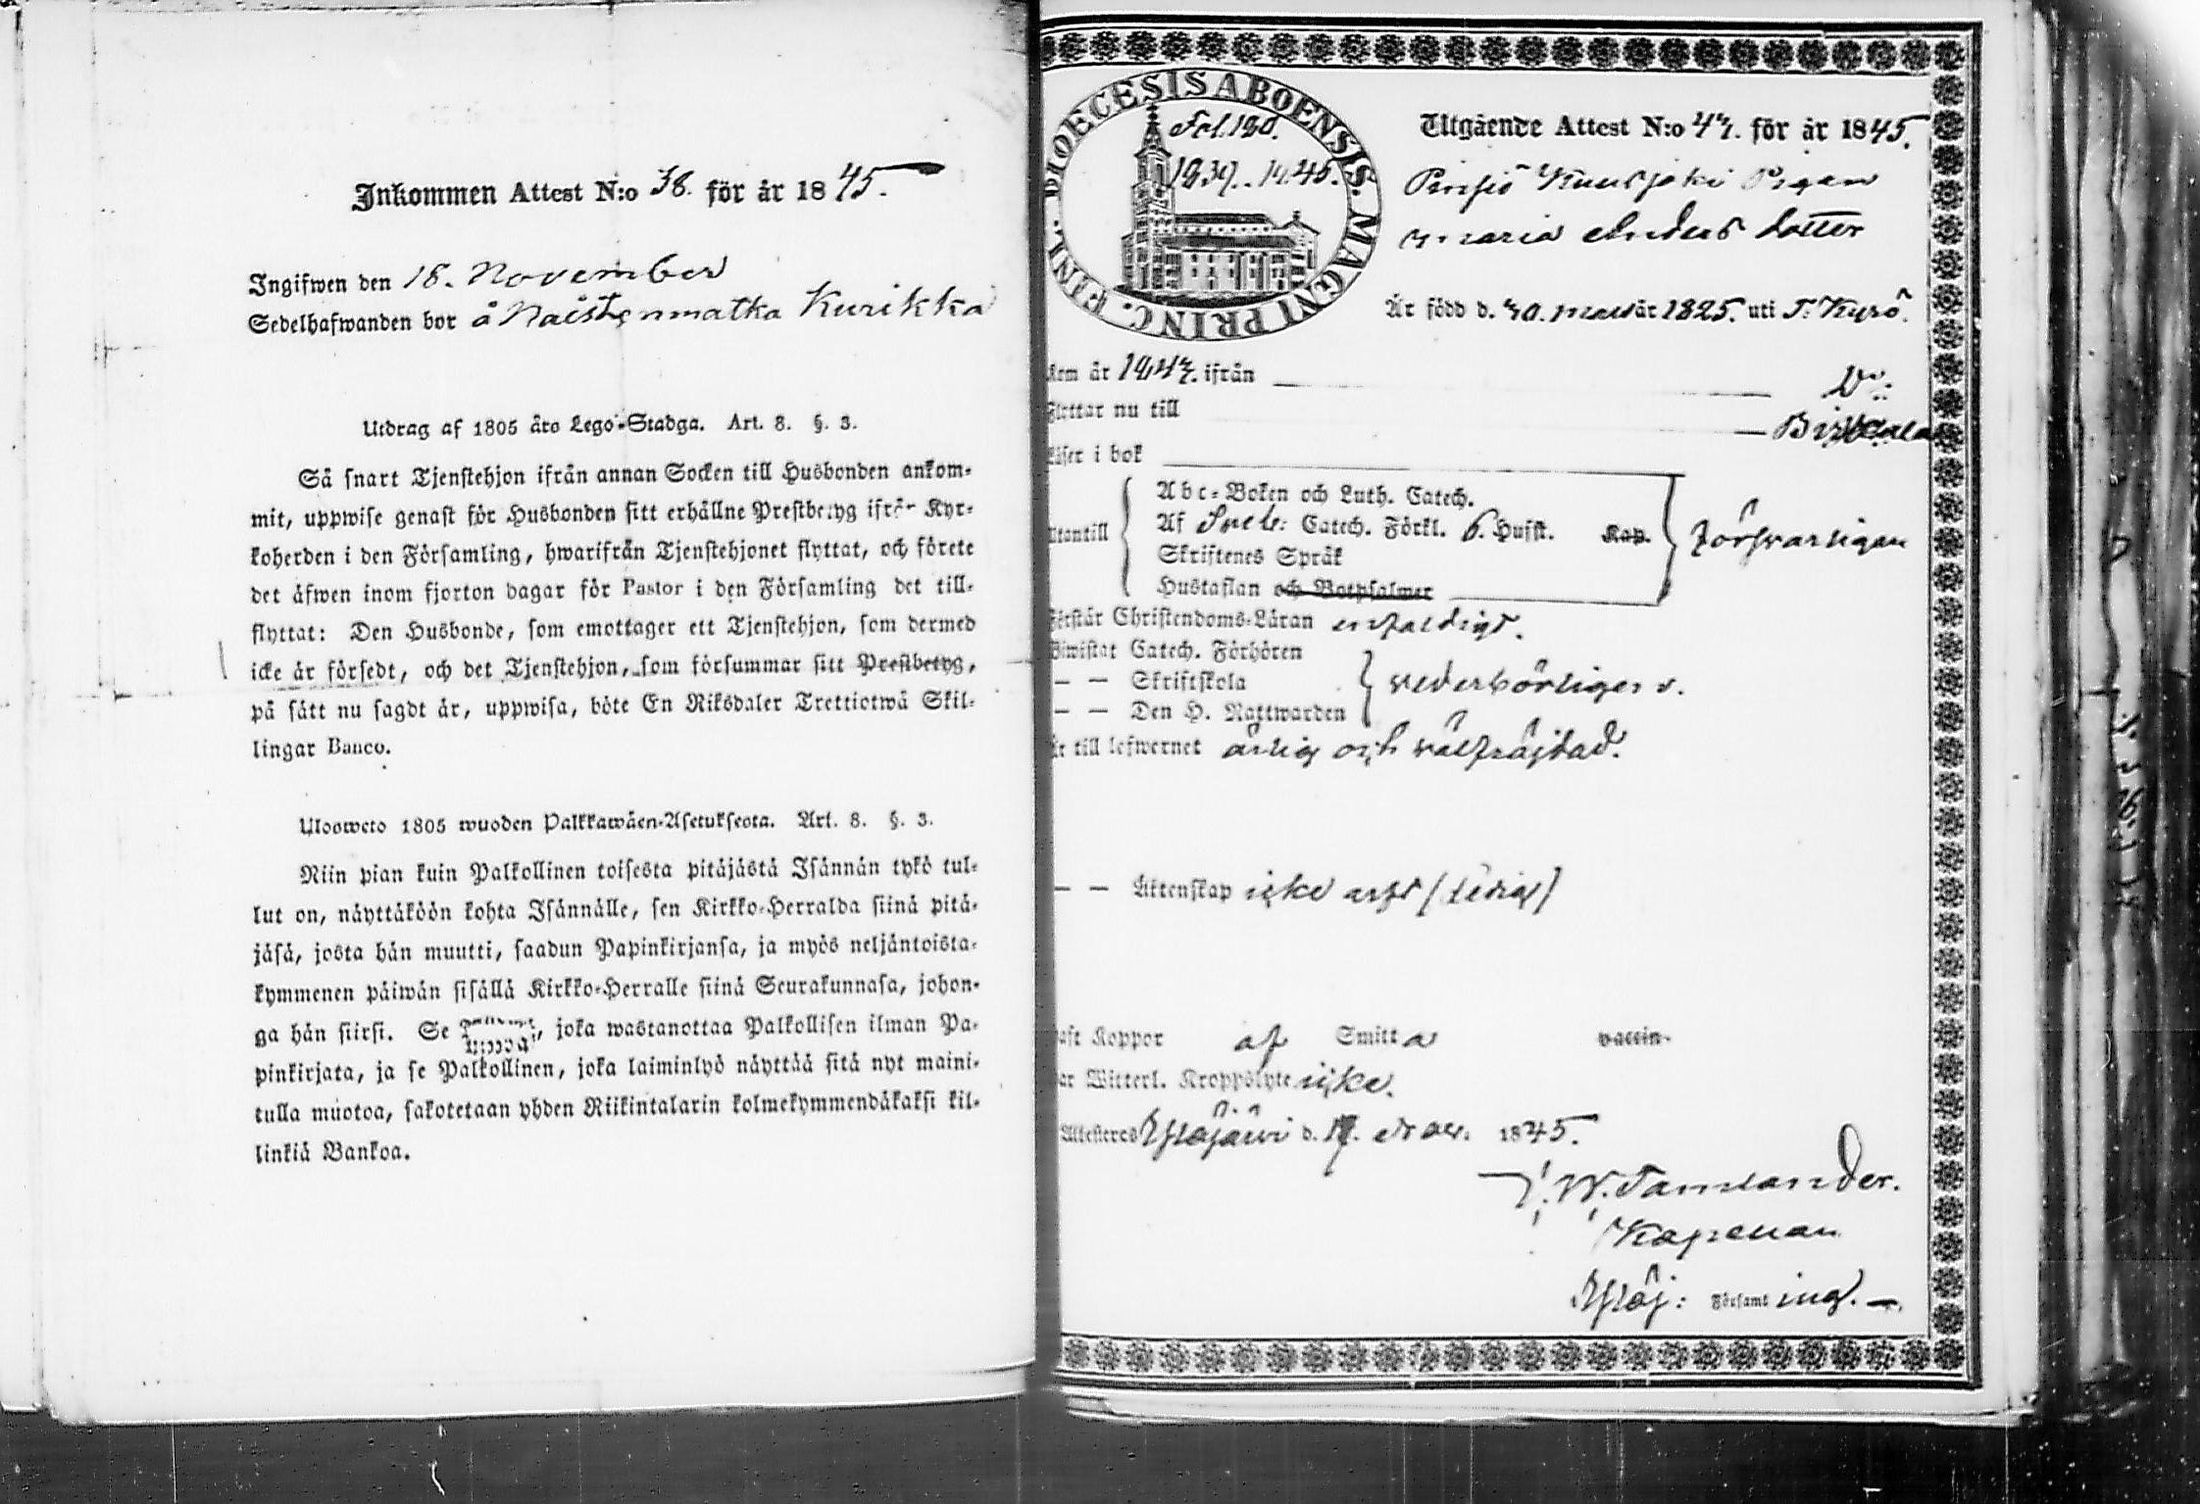 Inkommen Attest N:o 38. för år 1845.
Ingifwen den 18. November
Sedelhafwanden bor å Naistenmatka Kurikka
Utdrag af 1805 års Lego-Stadga. Art. 8. §. 3.
Så snart Tjenstehjon ifrån annan Socken till Husbonden ankom-
mit, uppwise genast för Husbonden sitt erhållne Prestbetyg ifrån Kyr-
koherden i den Församling, hwarifrån Tjenstehjonet flyttat, och förete
det äfwen inom fjorton dagar för Pastor i den Församling det till-
flyttat: Den Husbonde, som emottager ett Tjenstehjon, som dermed
icke är försedt, och det Tjenstehjon, som försummar sitt Prestbetyg,
på sätt nu sagdt är, uppwisa, böte En Riksdaler Trettiotwå Skil-
lingar Banco.
Ulosweto 1805 wuoden Palkkawäen-Asetuksesta. Art. 8. §. 3.
Niin pian kuin Palkollinen toisesta pitäjästä Isännän tykö tul-
lut on, näyttäköön kohta Isännälle, sen Kirkko-Herralda siinä pitä-
jäsä, josta hän muutti, saadun Papinkirjansa, ja myös neljäntoista-
kymmenen päiwän sisällä Kirkko-Herralle siinä Seurakunnasa, johon-
ga hän siirsi. Se joka wastanottaa Palkollisen ilman Pa-
pinkirjata, ja se Palkollinen, joka laiminlyö näyttää sitä nyt maini-
tulla muotoa, sakotetaan yhden Riikintalarin kolmekymmendäkaksi kil-
linkiä Bankoa.
DIOECESIS ABOENSIS. MAGNI PRINC. FINL.
Fol. 180.
1839. 1845.
Utgående Attest N:o 47. för år 1845.
Pinsiö Kuusjoki Pigan
Maria Anders dotter
Är född d. 30. mars år 1825. uti T. Kyrö.
Kom år 1847. ifrån D:o
Flyttar nu till Birkkala
Läser i bok
Utantill
Abc-Boken och Luth. Catech.
Af Sveb: Catech. Förkl. 6. Hufst. Kap.
Skriftenes Språk
Hustaflan och Botpsalmer
försvarligen
Förstår Christendoms-Läran enfaldigt.
Biwistat Catech. Förhören
— — Skriftskola
— — Den H. Nattwarden
vederbörligen
Är till lefwernet ärlig och välfräjdad.
— — Äktenskap icke (ledig)
Haft Koppor af Smitta vaccin.
Har Witterl. Kroppslyte icke.
Attesteres Ylöjärvi d. 17. Nov. 1845.
W. Tamlander.
Kapellan
Ylöj: Församling.